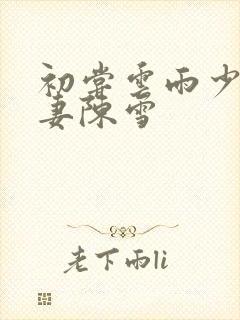 初尝雲雨少
妻陳雪
老下雨li